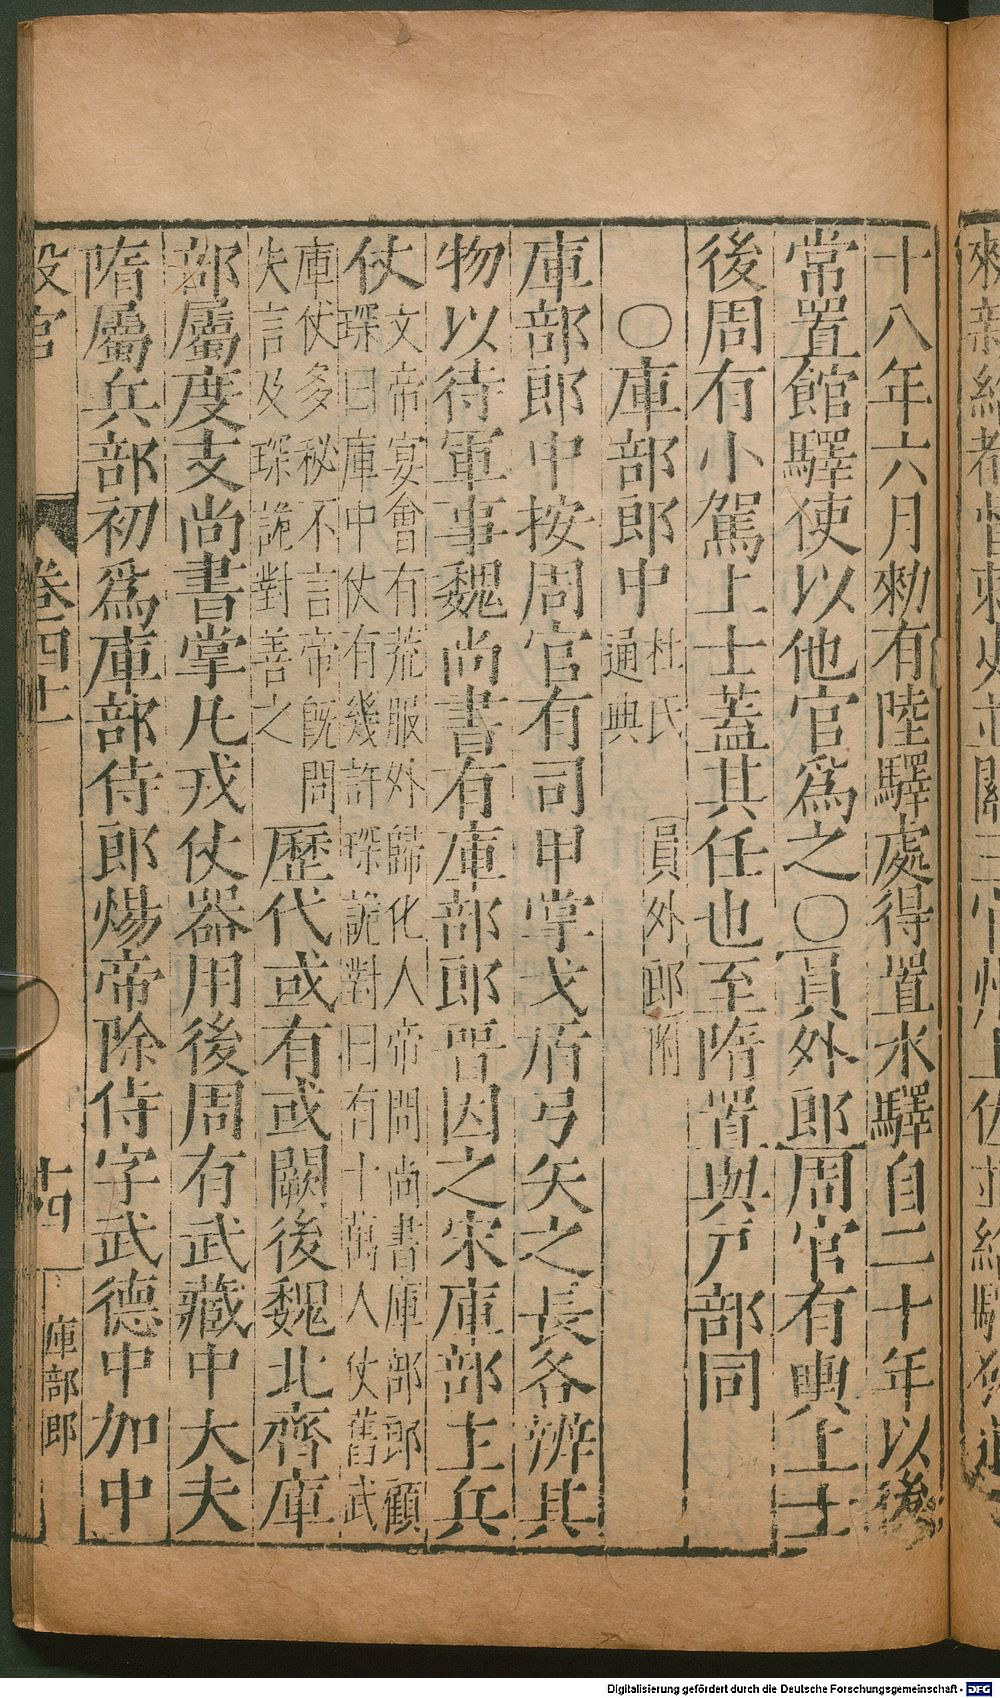 十八年六月勑有陸驛處得置水驛自二十年以後
常置館驛使以他官爲之〇員外郎周官有輿上士
後周有小駕上士蓋其任也至隋置與戶部同
〇庫部郎中杜氏通典員外郎附
庫部郎中按周官有司甲掌戈盾弓矢之長各辨其
物以待軍事魏尚書有庫部郎晉因之宋庫部主兵
仗文帝宴會有荒服外歸化人帝問尚書庫部郎顧
琛曰庫中仗有幾許琛詭對曰有十萬人仗舊武
庫仗多秘不言帝旣問
失言及琛詭對善之
歷代或有或闕後魏北齊庫
部屬度支尚書掌凡戎仗器用後周有武藏中大夫
隋屬兵部初爲庫部侍郎煬帝除侍字武德中加中
設官
卷四十
十四
庫部郎
Digitalisierung gefördert durch die Deutsche Forschungsgemeinschaft - DFG